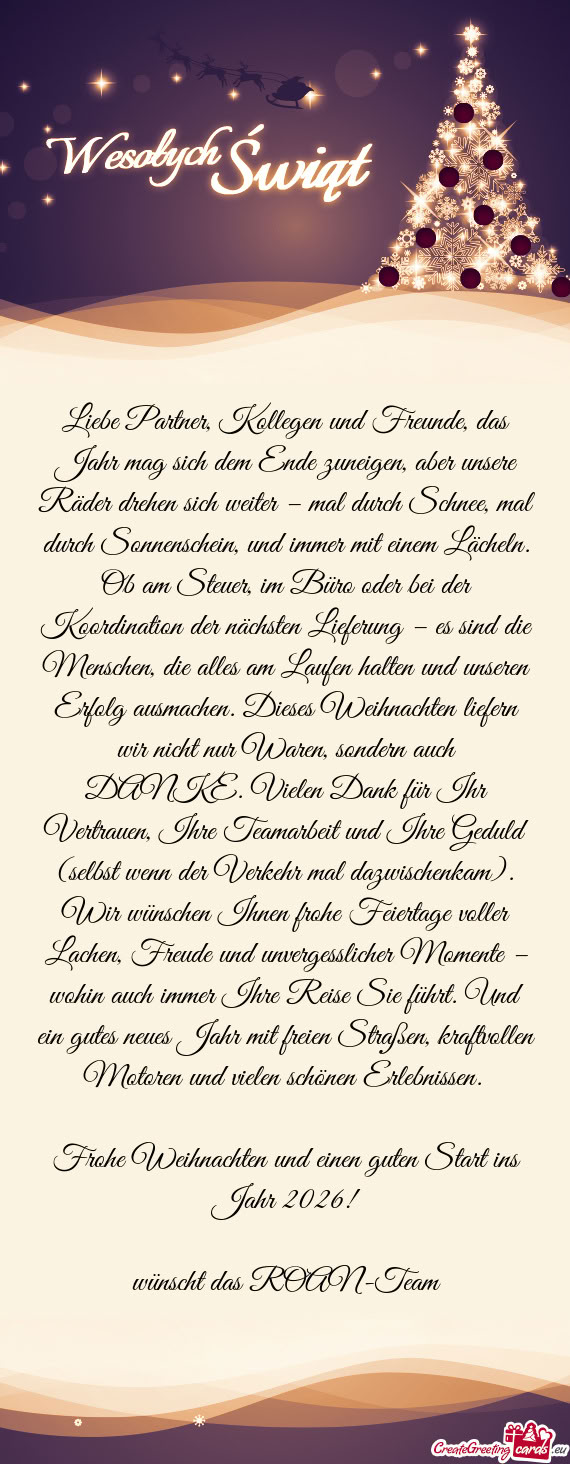 Wesołych Świąt
Liebe Partner, Kollegen und Freunde, das
Jahr mag sich dem Ende zuneigen, aber unsere
Räder drehen sich weiter – mal durch Schnee, mal
durch Sonnenschein, und immer mit einem Lächeln.
Ob am Steuer, im Büro oder bei der
Koordination der nächsten Lieferung – es sind die
Menschen, die alles am Laufen halten und unseren
Erfolg ausmachen. Dieses Weihnachten liefern
wir nicht nur Waren, sondern auch
DANKE. Vielen Dank für Ihr
Vertrauen, Ihre Teamarbeit und Ihre Geduld
(selbst wenn der Verkehr mal dazwischenkam).
Wir wünschen Ihnen frohe Feiertage voller
Lachen, Freude und unvergesslicher Momente –
wohin auch immer Ihre Reise Sie führt. Und
ein gutes neues Jahr mit freien Straßen, kraftvollen
Motoren und vielen schönen Erlebnissen.
Frohe Weihnachten und einen guten Start ins
Jahr 2026!
wünscht das ROAN-Team
CreateGreetingcards.eu